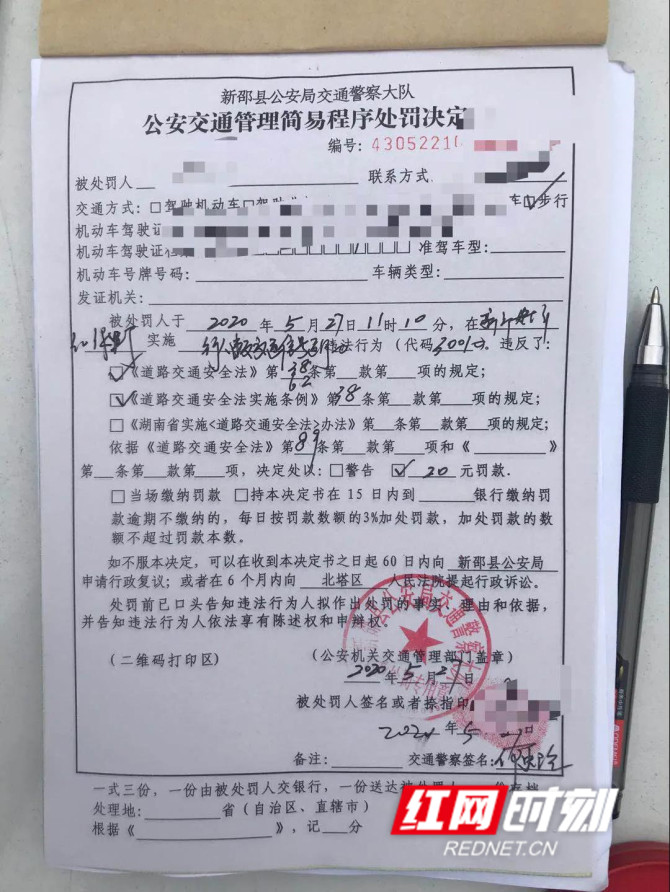 新邵县公安局交通警察大队
公安交通管理简易程序处罚决定
编号：43052210
被处罚人 联系方式
交通方式：□驾驶机动车□驾驶 车☑步行
机动车驾驶证
机动车驾驶证 准驾车型：
机动车号牌号码： 车辆类型：
发证机关：
被处罚人于 2020 年 5 月 27 日 11 时 10 分，在
实施 违法行为（代码 ）。违反了：
☑《道路交通安全法》第 38 62 条第 款第 项的规定；
☑《道路交通安全法实施条例》第 38 条第 款第 项的规定；
□《湖南省实施<道路交通安全法>办法》第 条第 款第 项的规定；
依据《道路交通安全法》第 89 条第 款第 项和《 》
第 条第 款第 项，决定处以：□警告 ☑ 20 元罚款．
□当场缴纳罚款 □持本决定书在 15 日内到 银行缴纳罚
款逾期不缴纳的，每日按罚款数额的3%加处罚款，加处罚款的数
额不超过罚款本数。
如不服本决定，可以在收到本决定书之日起 60 日内向 新邵县公安局
申请行政复议；或者在 6 个月内向 北塔区 人民法院提起行政诉讼。
处罚前已口头告知违法行为人拟作出处罚的事实、理由和依据，
并告知违法行为人依法享有陈述权和申辩权。
（二维码打印区） （公安机关交通管理部门盖章）
2020 年 5 月 27 日
被处罚人签名或者捺指印
年 5 日
备注： 交通警察签名：
一式三份，一份由被处罚人交银行，一份送达被处罚人
处理地： 省（自治区、直辖市）
根据《 》，记 分
红网时刻
REDNET.CN